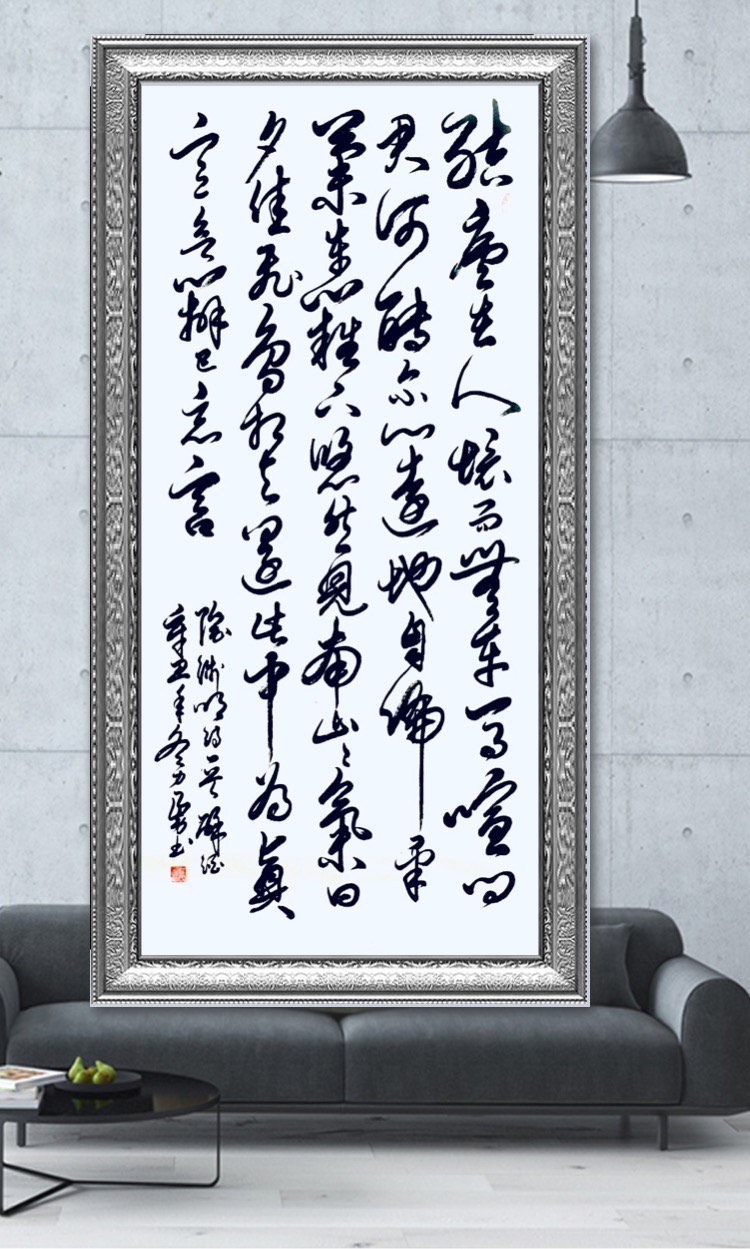 結廬在人境而無車馬喧問
君何能爾心遠地自偏采
菊東籬下悠然見南山〻氣日
夕佳飛鳥相与還此中有真
意欲辨已忘言
陶淵明 飲酒
辛丑年冬 書